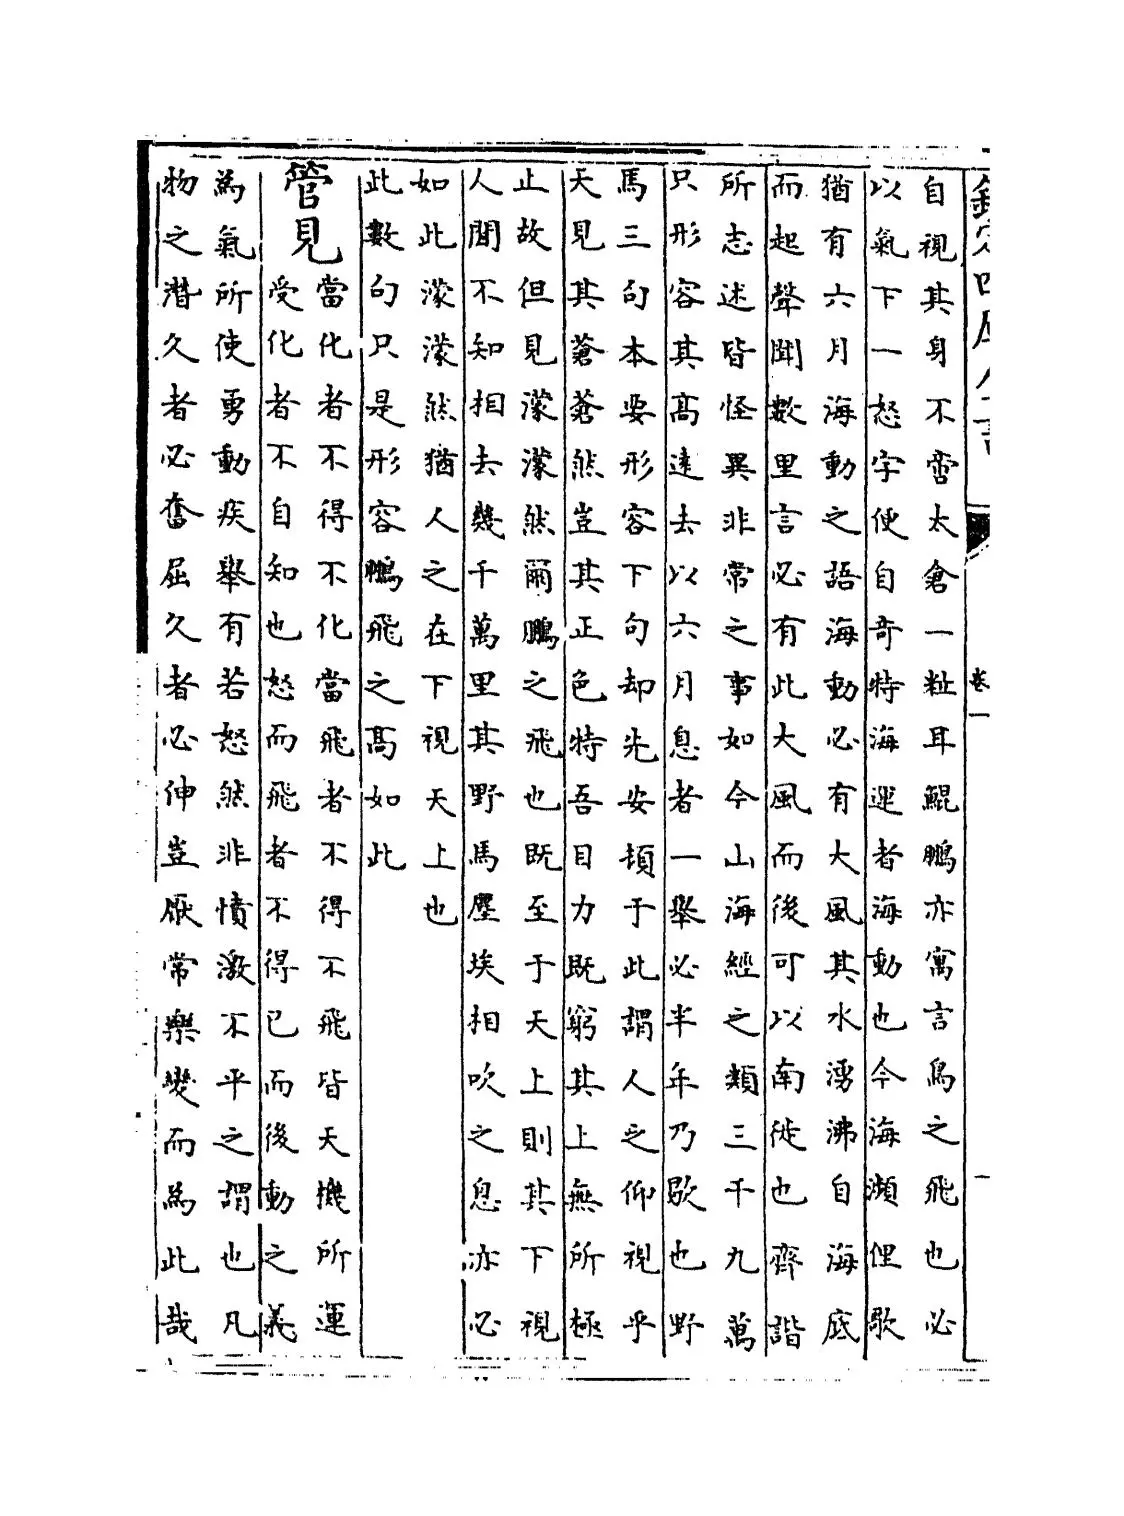 欽定四庫全書
卷一
一
自視其身不啻太倉一粒耳鯤鵬亦寓言鳥之飛也必
以氣下一怒字便自奇特海運者海動也今海瀕俚歌
猶有六月海動之語海動必有大風其水湧沸自海底
而起聲聞數里言必有此大風而後可以南徙也齊諧
所志述皆怪異非常之事如今山海經之類三千九萬
只形容其髙遠去以六月息者一舉必半年乃歇也野
馬三句本要形容下句却先安頓于此謂人之仰視乎
天見其蒼蒼然豈其正色特吾目力既窮其上無所極
止故但見濛濛然爾鵬之飛也既至于天上則其下視
人間不知相去幾千萬里其野馬塵埃相吹之息亦必
如此濛濛然猶人之在下視天上也
此數句只是形容鵬飛之髙如此
管見
當化者不得不化當飛者不得不飛皆天機所運
受化者不自知也怒而飛者不得已而後動之義
為氣所使勇動疾舉有若怒然非憤激不平之謂也凡
物之潛久者必奮屈久者必伸豈厭常樂變而為此哉